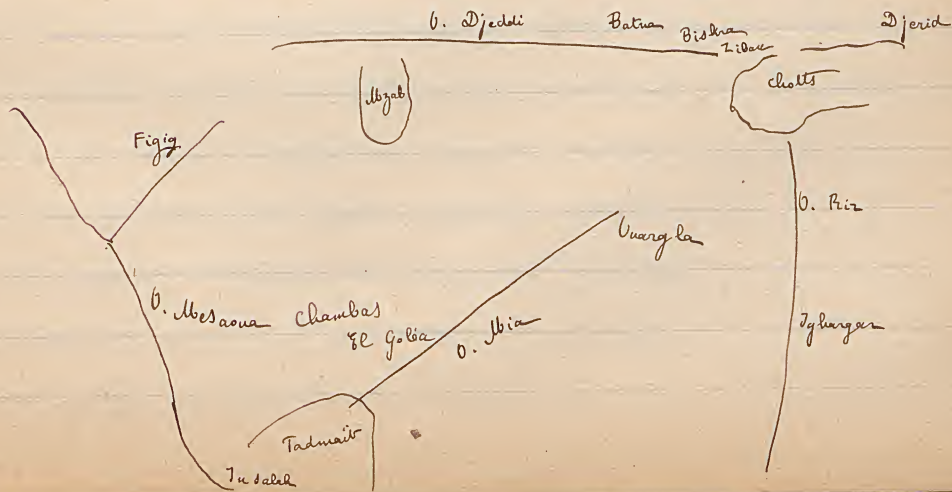 O. Djeddi
Batna
Biskra
Zibans
Djerid
Mzab
chotts
Figig
O. Rir
Ouargla
O. Mesaoura
Chambas
El Goléa
O. Mia
Igharghar
Tadmaït
In salah